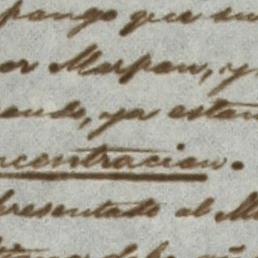 pongo que su
or Marpau, y
ando, ya estan
ncentracion.
presentado al M